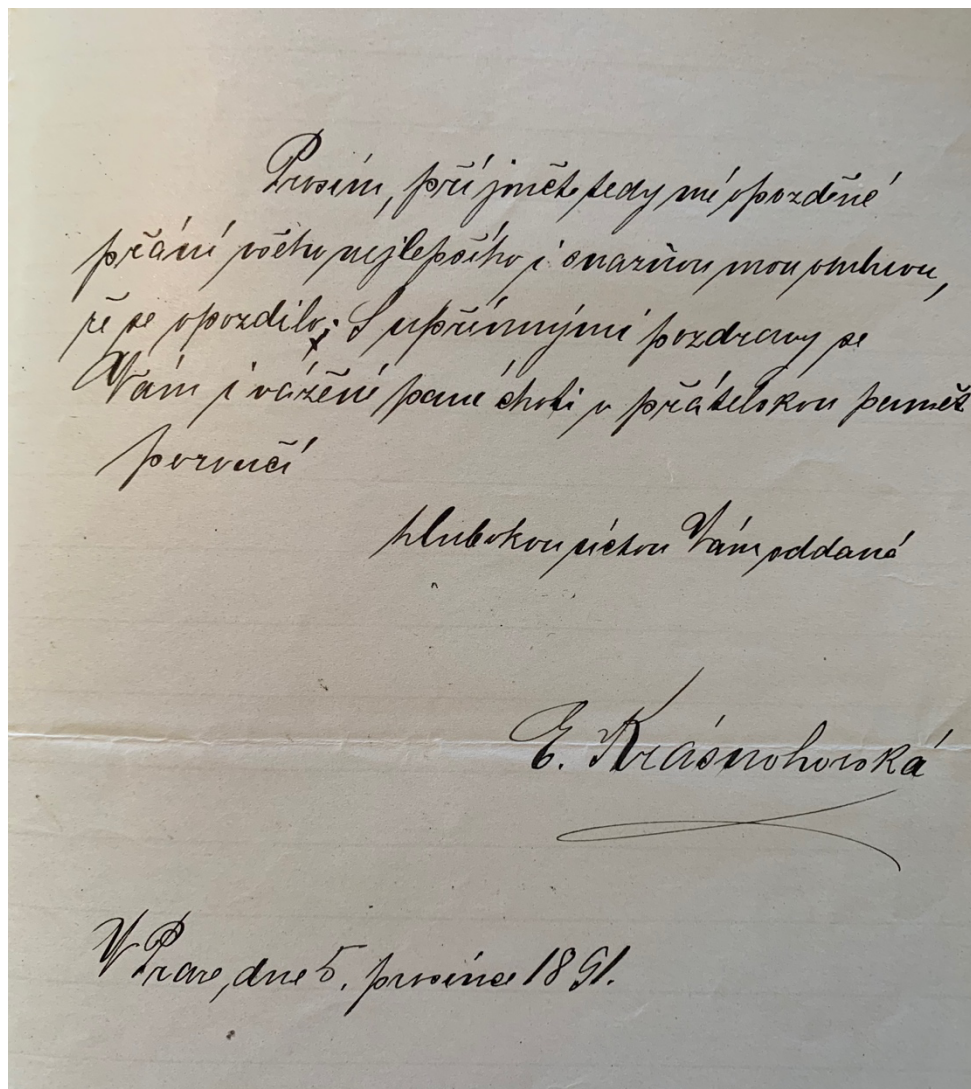 Prosím, přijměte tedy mé opožděné
přání všeho nejlepšího i snažnou mou omluvu,
že se opozdilo. S upřímnými pozdravy se
Vám i vážené paní choti v přátelskou paměť
poroučí
hlubokou úctou Vám oddaná
E. Krásnohorská
V Praze, dne 5. prosince 1891.